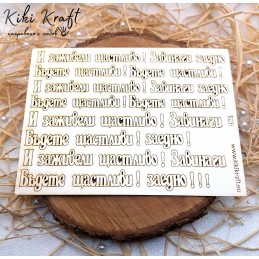 Kiki Kraft
И заживели щастливо! Завинаги заедно
Бъдете щастливи! Бъдете щастливи!
И заживели щастливо! Завинаги заедно
Бъдете щастливи! Бъдете щастливи!
И заживели щастливо! Завинаги
Бъдете щастливи! заедно!
И заживели щастливо! Завинаги
Бъдете щастливи! заедно!!!
www.kikikraft.eu